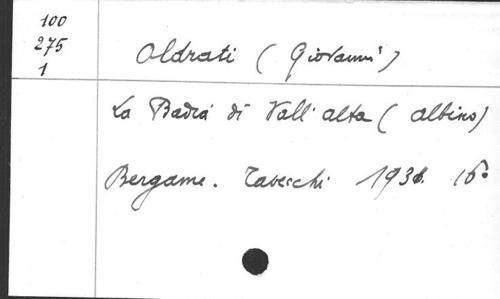 100
275
1
Oldrati ( Giovanni )
La Badia di Vall'alta ( Albino )
Bergame. Tavecchi 193 16°